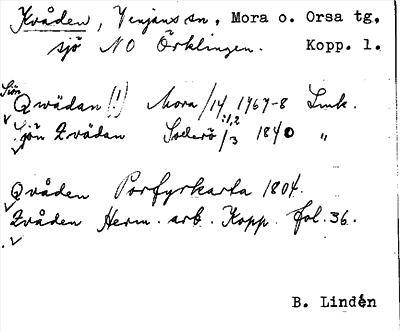 Kvåden, Venjans sn, Mora o. Orsa tg,
sjö NO Örklingen. Kopp. l.
Sjön Qwådan (!) Mora /14 1767-8 Lmk.
Sjön Qvådan Sollerö 1/2/3 1840 "
Qvåden Porfyrkarta 1804.
Qvåden Herm. arb. Kopp. fol. 36.
B. Lindén